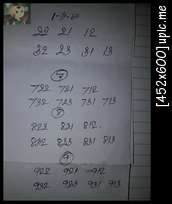 22 21 12
32 23 31 13
7
732 721 712
732 723 731 713
8
823 821 812
832 823 831 813
9
922 921 912
932 923 931 913
[452x600] upic.me